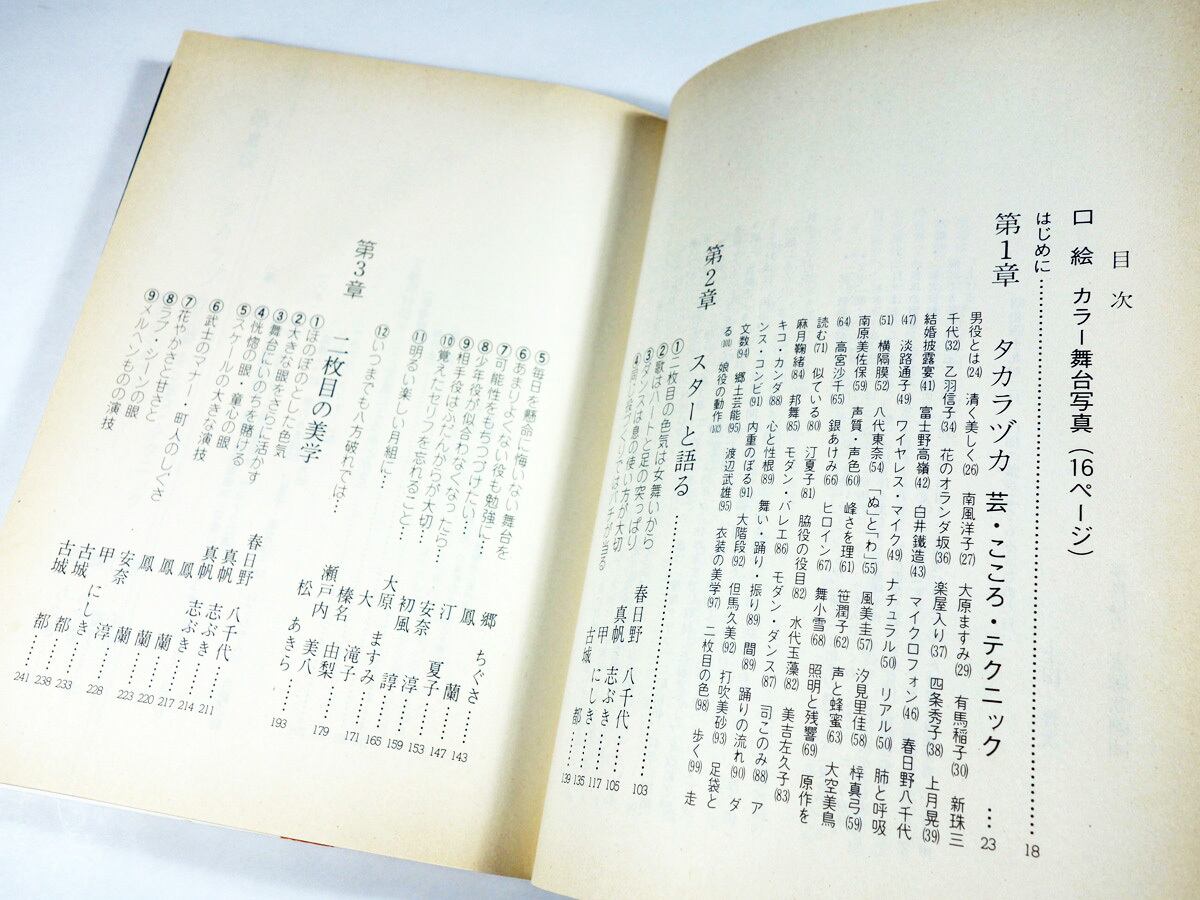 目次
口絵 カラー舞台写真(16ページ)
はじめに……18
第1章 タカラヅカ 芸・こころ・テクニック…23
男役とは(24) 清く美しく(26) 南風洋子(27) 大原ますみ(29) 有馬稲子(30) 新珠三
千代(32) 乙羽信子(34) 花のオランダ坂(36) 楽屋入り(37) 四条秀子(38) 上月晃(39)
結婚披露宴(41) 富士野高嶺(42) 白井鐵造(43) マイクロフォン(46) 春日野八千代
(47) 淡路通子(49) ワイヤレス・マイク(49) ナチュラル(50) リアル(50) 肺と呼吸
(51) 横隔膜(52) 八代東奈(54) 「ぬ」と「わ」(55) 風美圭(57) 汐見里佳(58) 梓真弓(59)
南原美佐保(59) 声質・声色(60) 峰さを理(61) 笹潤子(62) 声と蜂蜜(63) 大空美鳥
(64) 高宮沙千(65) 銀あけみ(66) ヒロイン(67) 舞小雪(68) 照明と残響(69) 原作を
読む(71) 似ている(80) 汀夏子(81) 脇役の役目(82) 水代玉藻(82) 美吉左久子(83)
麻月鞠緒(84) 邦舞(85) モダン・バレエ(86) モダン・ダンス(87) 司このみ(88) ア
キコ・カンダ(88) 心と性根(89) 舞い・踊り・振り(89) 間(89) 踊りの流れ(90) ダ
ンス・コンビ(91) 内重のぼる(91) 大階段(92) 但馬久美(92) 打吹美砂(93) 足袋と
文数(94) 郷土芸能(95) 渡辺武雄(95) 衣装の美学(97) 二枚目の色(98) 歩く(99) 走
る(101) 娘役の動作(102)
第2章 スターと語る……103
①二枚目の色気は女舞いから 春日野 八千代…105
②歌はハートと足の突っぱり 真帆 志ぶき…117
③ダンスは息の使い方が大切 甲 にしき…135
④ 古城 都…139
⑤毎日を懸命に悔いない舞台を 郷 ちぐさ…143
⑥あまりよくない役も勉強に… 鳳 蘭…147
⑦可能性をもちつづけたい… 汀 夏子…153
⑧少年役が似合わなくなったら… 安奈 淳…159
⑨相手役はふだんからが大切… 初風 諄…165
⑩覚えたセリフを忘れること… 大原 ますみ…171
⑪明るい楽しい月組に… 大 滝子…179
⑫いつまでも八方破れでは… 榛名 由梨
瀬戸内 美八
松 あきら…193
第3章 二枚目の美学
①ほのぼのとした色気
②大きな眼をさらに活かす
③舞台にいのちを賭ける
④恍惚の眼・童心の眼
⑤スケールの大きな演技
⑥武士のマゲ・町人のしぐさ
⑦花やかさと甘さと
⑧ラブ・シーンの眼
⑨メルヘンものの演技
春日野 八千代
真帆 志ぶき…211
真帆 志ぶき…214
鳳 蘭…217
鳳 蘭…220
鳳 蘭…223
安奈 淳…228
甲 にしき…233
古城 都…238
古城 都…241